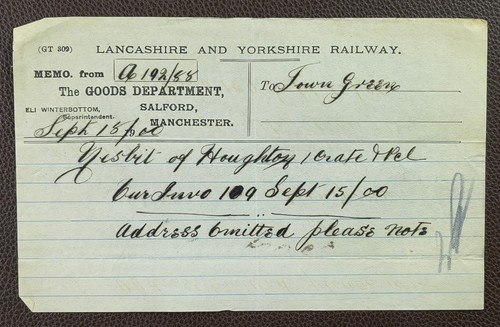 (GT 309) LANCASHIRE AND YORKSHIRE RAILWAY.
MEMO. from A 192/88
The GOODS DEPARTMENT,
To Town Green
ELI WINTERBOTTOM, SALFORD,
Superintendent. MANCHESTER.
Sept 18/00
Nesbit of Houghton 1 Crate & Pcl
Our Invo 109 Sept 15/00
Address Omitted please note